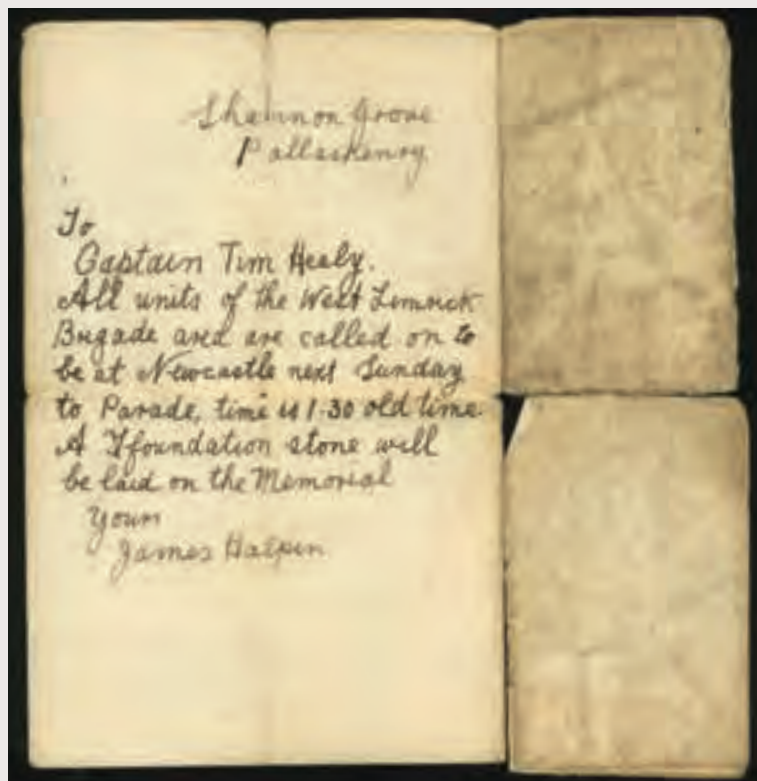 Shannon Grove
Pallaskenry
To
Captain Tim Healy.
All units of the West Limrick
Brigade area are called on to
be at Newcastle next Sunday
to Parade, time is 1-30 old time.
A Ffoundation stone will
be laid on the Memorial
Yours
James Halpin